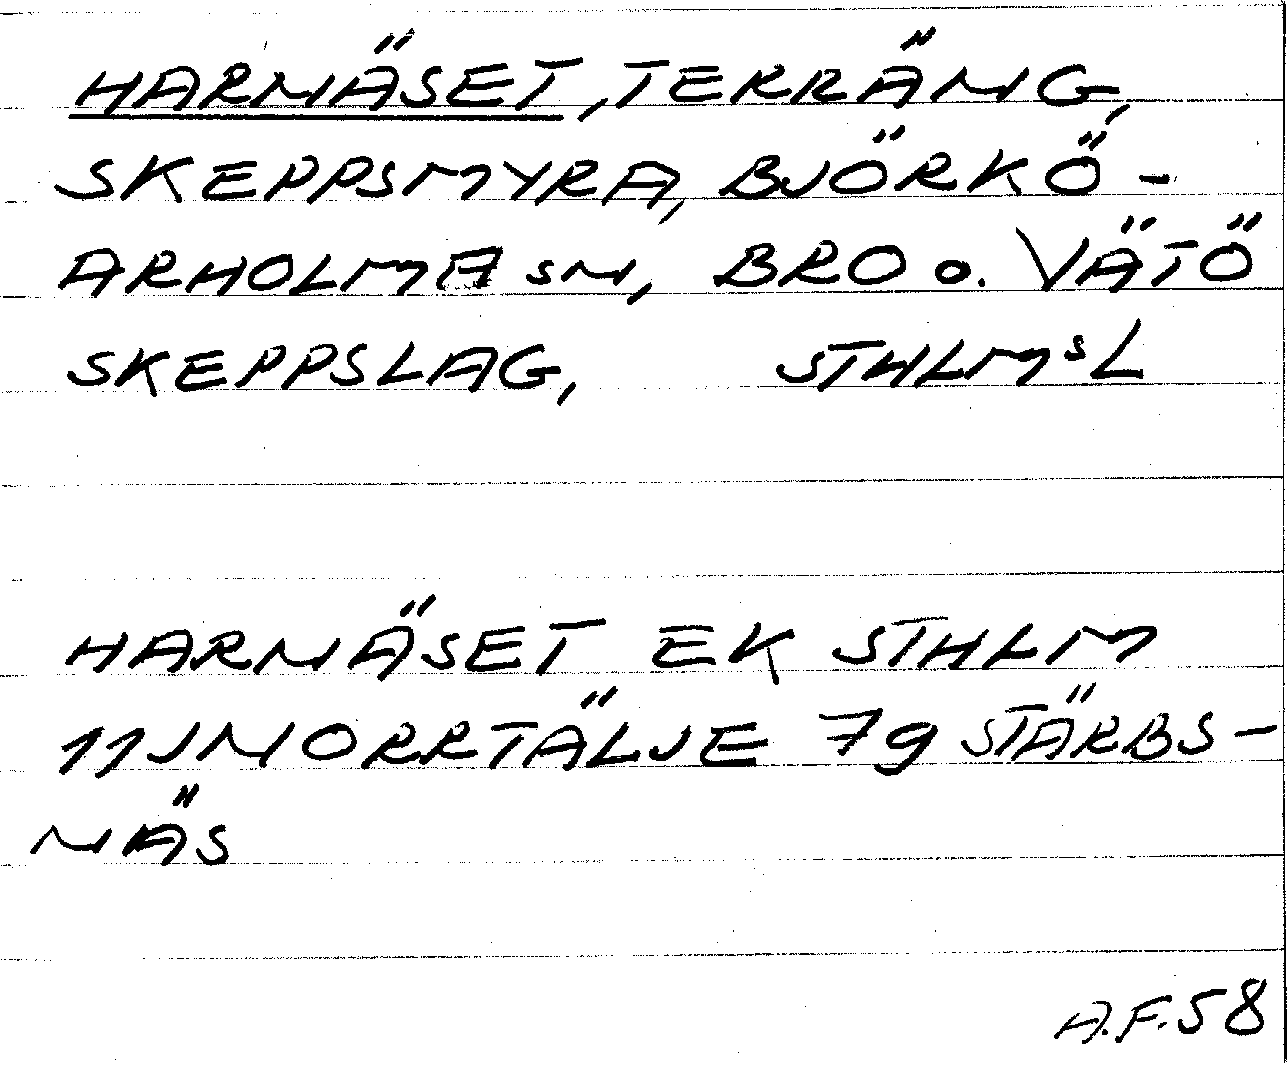 HARNÄSET, TERRÄNG,
SKEPPSMYRA, BJÖRKÖ-
ARHOLMA SN, BRO o. VÄTÖ
SKEPPSLAG, STHLMSL
HARNÄSET EK STHLM
11J NORRTÄLJE 79 STÄRBS-
NÄS
A.F. 58